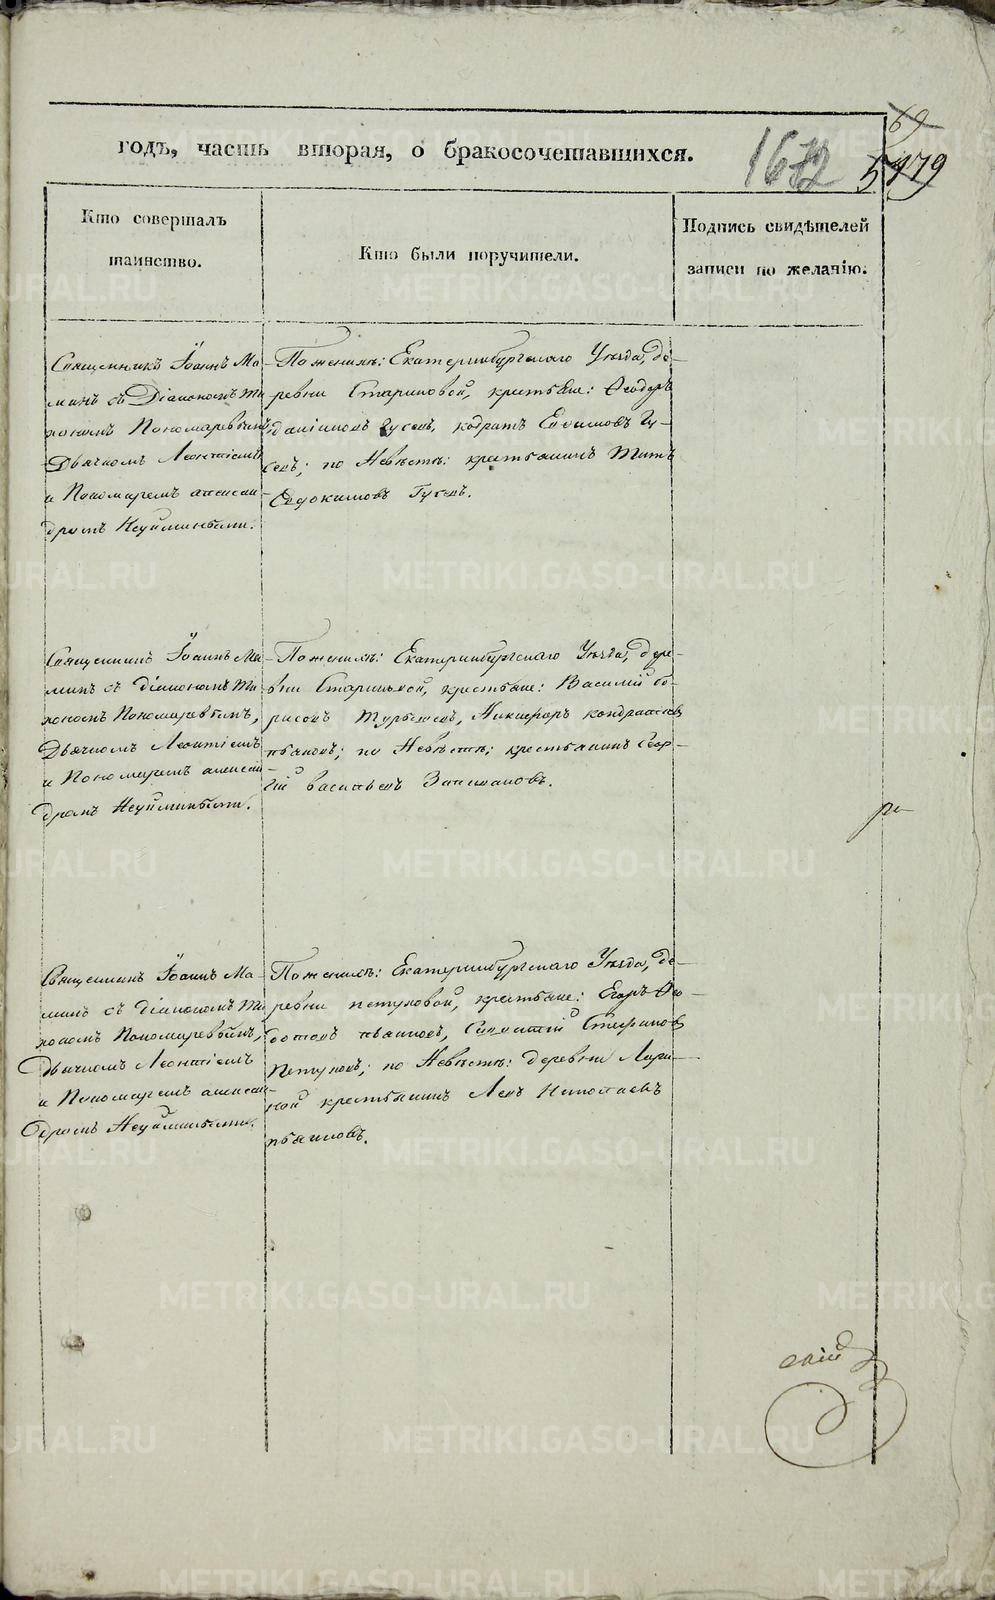 годъ, часть вторая, о бракосочетавшихся.
69
1672
5179
Кто совершалъ
таинство.
Кто были поручители.
Подпись свидѣтелей
записи по желанію.
Священникъ Іоаннъ Ма-
минъ съ Діакономъ Ти
хономъ Пономаревымъ,
Дьячкомъ Леонтіемъ
и Пономаремъ алексан
дромъ Неуймиными.
По женихѣ: Екатеринбургскаго Уѣзда, де-
ревни Стариковой, крестьяне: Ѳеодоръ
Гусевъ, кодратъ Евдокимовъ Гу-
севъ; по Невѣстѣ: крестьянинъ Титъ
Евдокимовъ Гусевъ.
Священникъ Іоаннъ Ма
минъ съ діакономъ Ти
хономъ Пономаревымъ,
Дьячкомъ Леонтіемъ
и Пономаремъ алексан
дромъ Неуймиными.
По женихѣ: Екатеринбургскаго Уѣзда, дере-
вни крестьяне: Василій бо-
рисовъ Никифоръ кондратьевъ
пьянковъ; по Невѣстѣ; крестьянинъ Геор-
гій васильевъ
Священникъ Іоаннъ Ма-
минъ съ діакономъ Ти
хономъ Пономаревымъ,
Дьячкомъ Леонтіемъ
и Пономаремъ алексан
дромъ Неуймиными.
По женихѣ: Екатеринбургскаго Уѣзда, де-
ревни петуховой, крестьяне: Егоръ Ѳео-
Стефановъ
Петуховъ; по Невѣстѣ: деревни Лари-
ной крестьянинъ Левъ
пьянковъ.
ре
скій
METRIKI.GASO-URAL.RU